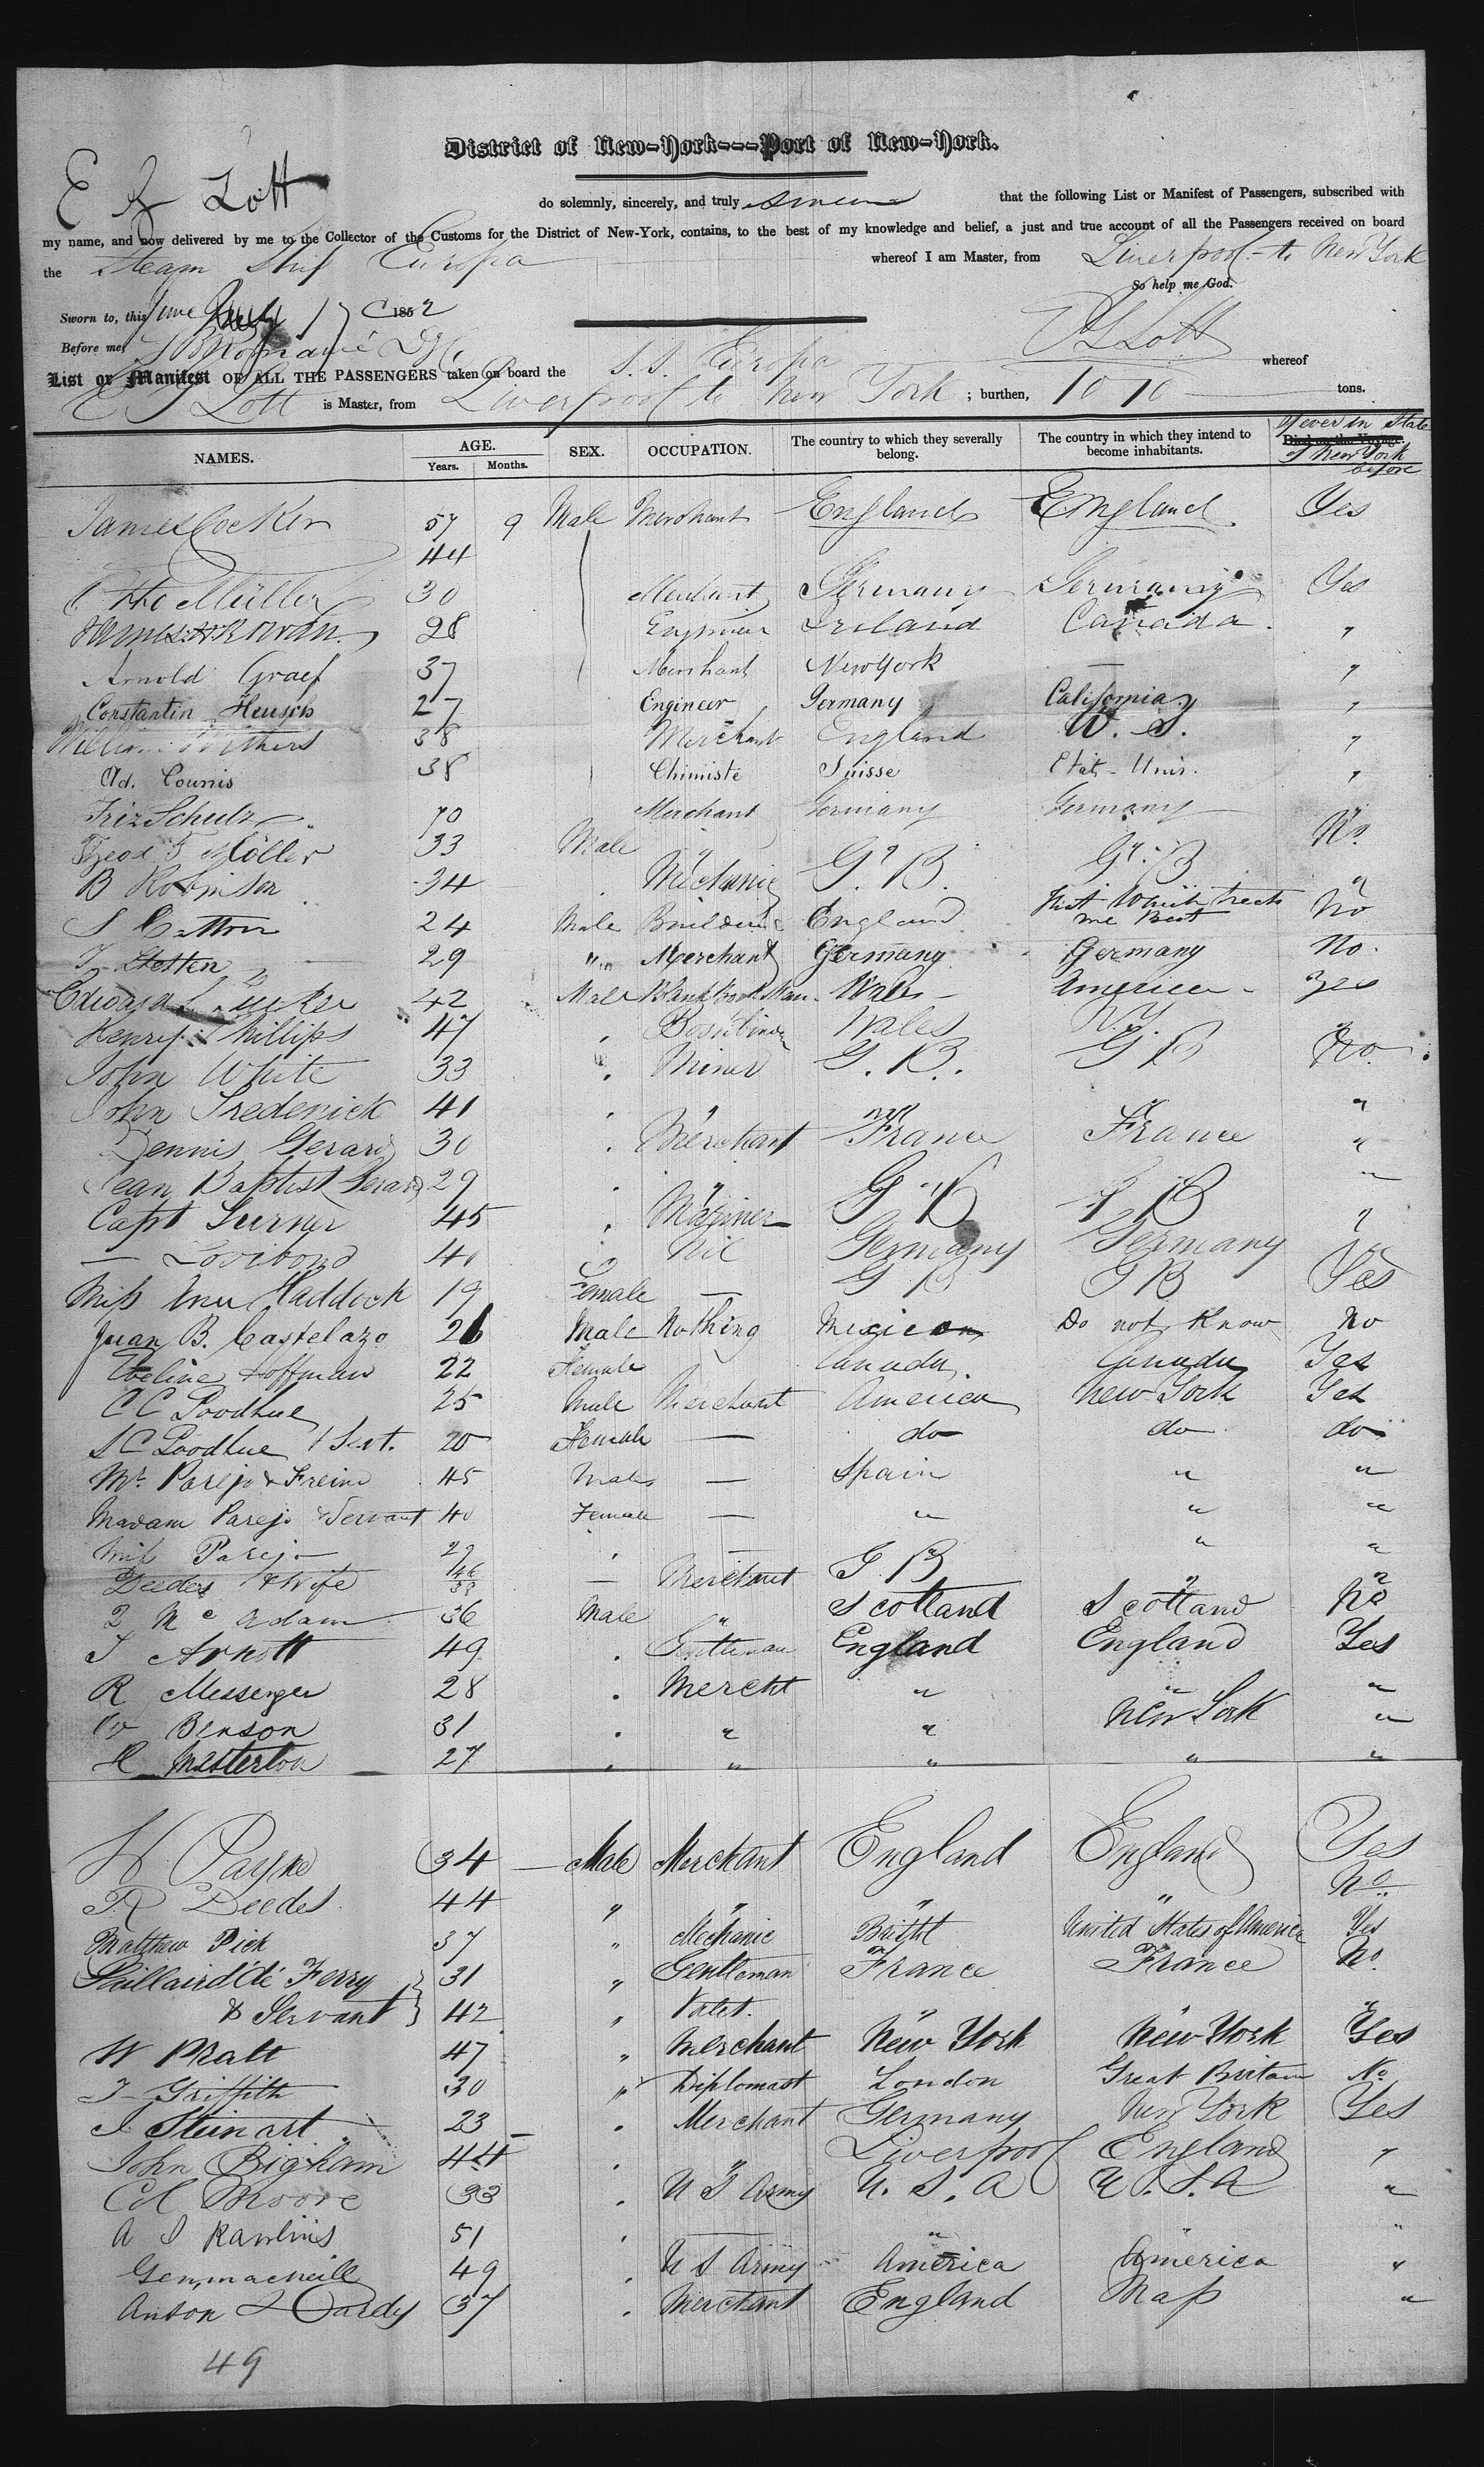 District of New-York---Port of New-York.
E G Lott do solemnly, sincerely, and truly swear that the following List or Manifest of Passengers, subscribed with
my name, and now delivered by me to the Collector of the Customs for the District of New-York, contains, to the best of my knowledge and belief, a just and true account of all the Passengers received on board
the Steam Ship Europa whereof I am Master, from Liverpool to New York
So help me God.
Sworn to, this June 17 1852
Before me, E G Lott
List or Manifest OF ALL THE PASSENGERS taken on board the S.S. Europa whereof
E G Lott is Master, from Liverpool to New York ; burthen, 1010 tons.
NAMES. AGE. Years. Months. SEX. OCCUPATION. The country to which they severally belong. The country in which they intend to become inhabitants. Died on the Voyage. If ever in State of New York before
James Cocker 57 9 Male Merchant England England Yes
44
Otto Müller 30 Merchant Germany Germany Yes
28 Engineer Ireland Canada "
Arnold Graef 37 Merchant New York — "
Constantin Heusch 27 Engineer Germany California "
William Withers 38 Merchant England U. S. "
Ad. Counis 38 Chimiste Suisse Etats-Unis. "
Friz Schulz 70 Merchant Germany Germany No
Theod F Möller 33 Male " "
B Robinson 34 Mechanic G. B. G. B "
S Cotton 24 Male Builder England that which treats me Best No
T Stetten 29 " Merchant Germany Germany No.
Edward Tucker 42 Male Blank Book Man. Wales America Yes
Henry Phillips 47 " Wales N.Y. "
John White 33 " Miner G. B. G B No
John Frederick 41 " " " " "
Dennis Gerard 30 " Merchant France France "
Jean Baptist Gerard 29 " " " " "
Capt Turner 45 " Mariner G B G B "
— Lovibond 40 " Nil Germany Germany "
Miss Ann Haddock 19 Female — G B G B Yes
Juan B. Castelazo 26 Male Nothing Mexico Do not Know No
Eveline Hoffman 22 Female Canada Canada Yes
C C Goodhue 25 Male Merchant America New York Yes
S C Goodhue & Servt. 20 Female — do do do
Mr Parejo & Friend 45 Males — Spain " "
Madam Parejo & Servant 40 Female — " " "
Miss Parejo 29 " — " "
Deedes & Wife 46 — Merchant G B " "
Q McAdam 36 Male " Scotland Scotland No
T Arnott 49 " Gentleman England England Yes
R Messenger 28 " Mercht " " "
W Benson 31 " " " New York "
H Mesterton 27 " " " " "
H Payne 34 — Male Merchant England England Yes
R Deedes 44 " " " " No
Matthew Pick 37 " Mechanic British United States of America Yes
Ferry 31 " Gentleman France France No
& Servant 42 " Valet. " " "
W Pratt 47 " Merchant New York New York Yes
T Griffith 30 " Diplomast London Great Britain No
J. Steinart 23 " Merchant Germany New York Yes
John Bigham 44 " " Liverpool England "
Col Moore 33 " U S Army U. S. A U. S. A "
A S Rawlins 51 " " " "
Gen. macneill 49 " U S Army America America "
Anson Hardy 37 " Merchant England Mass "
49